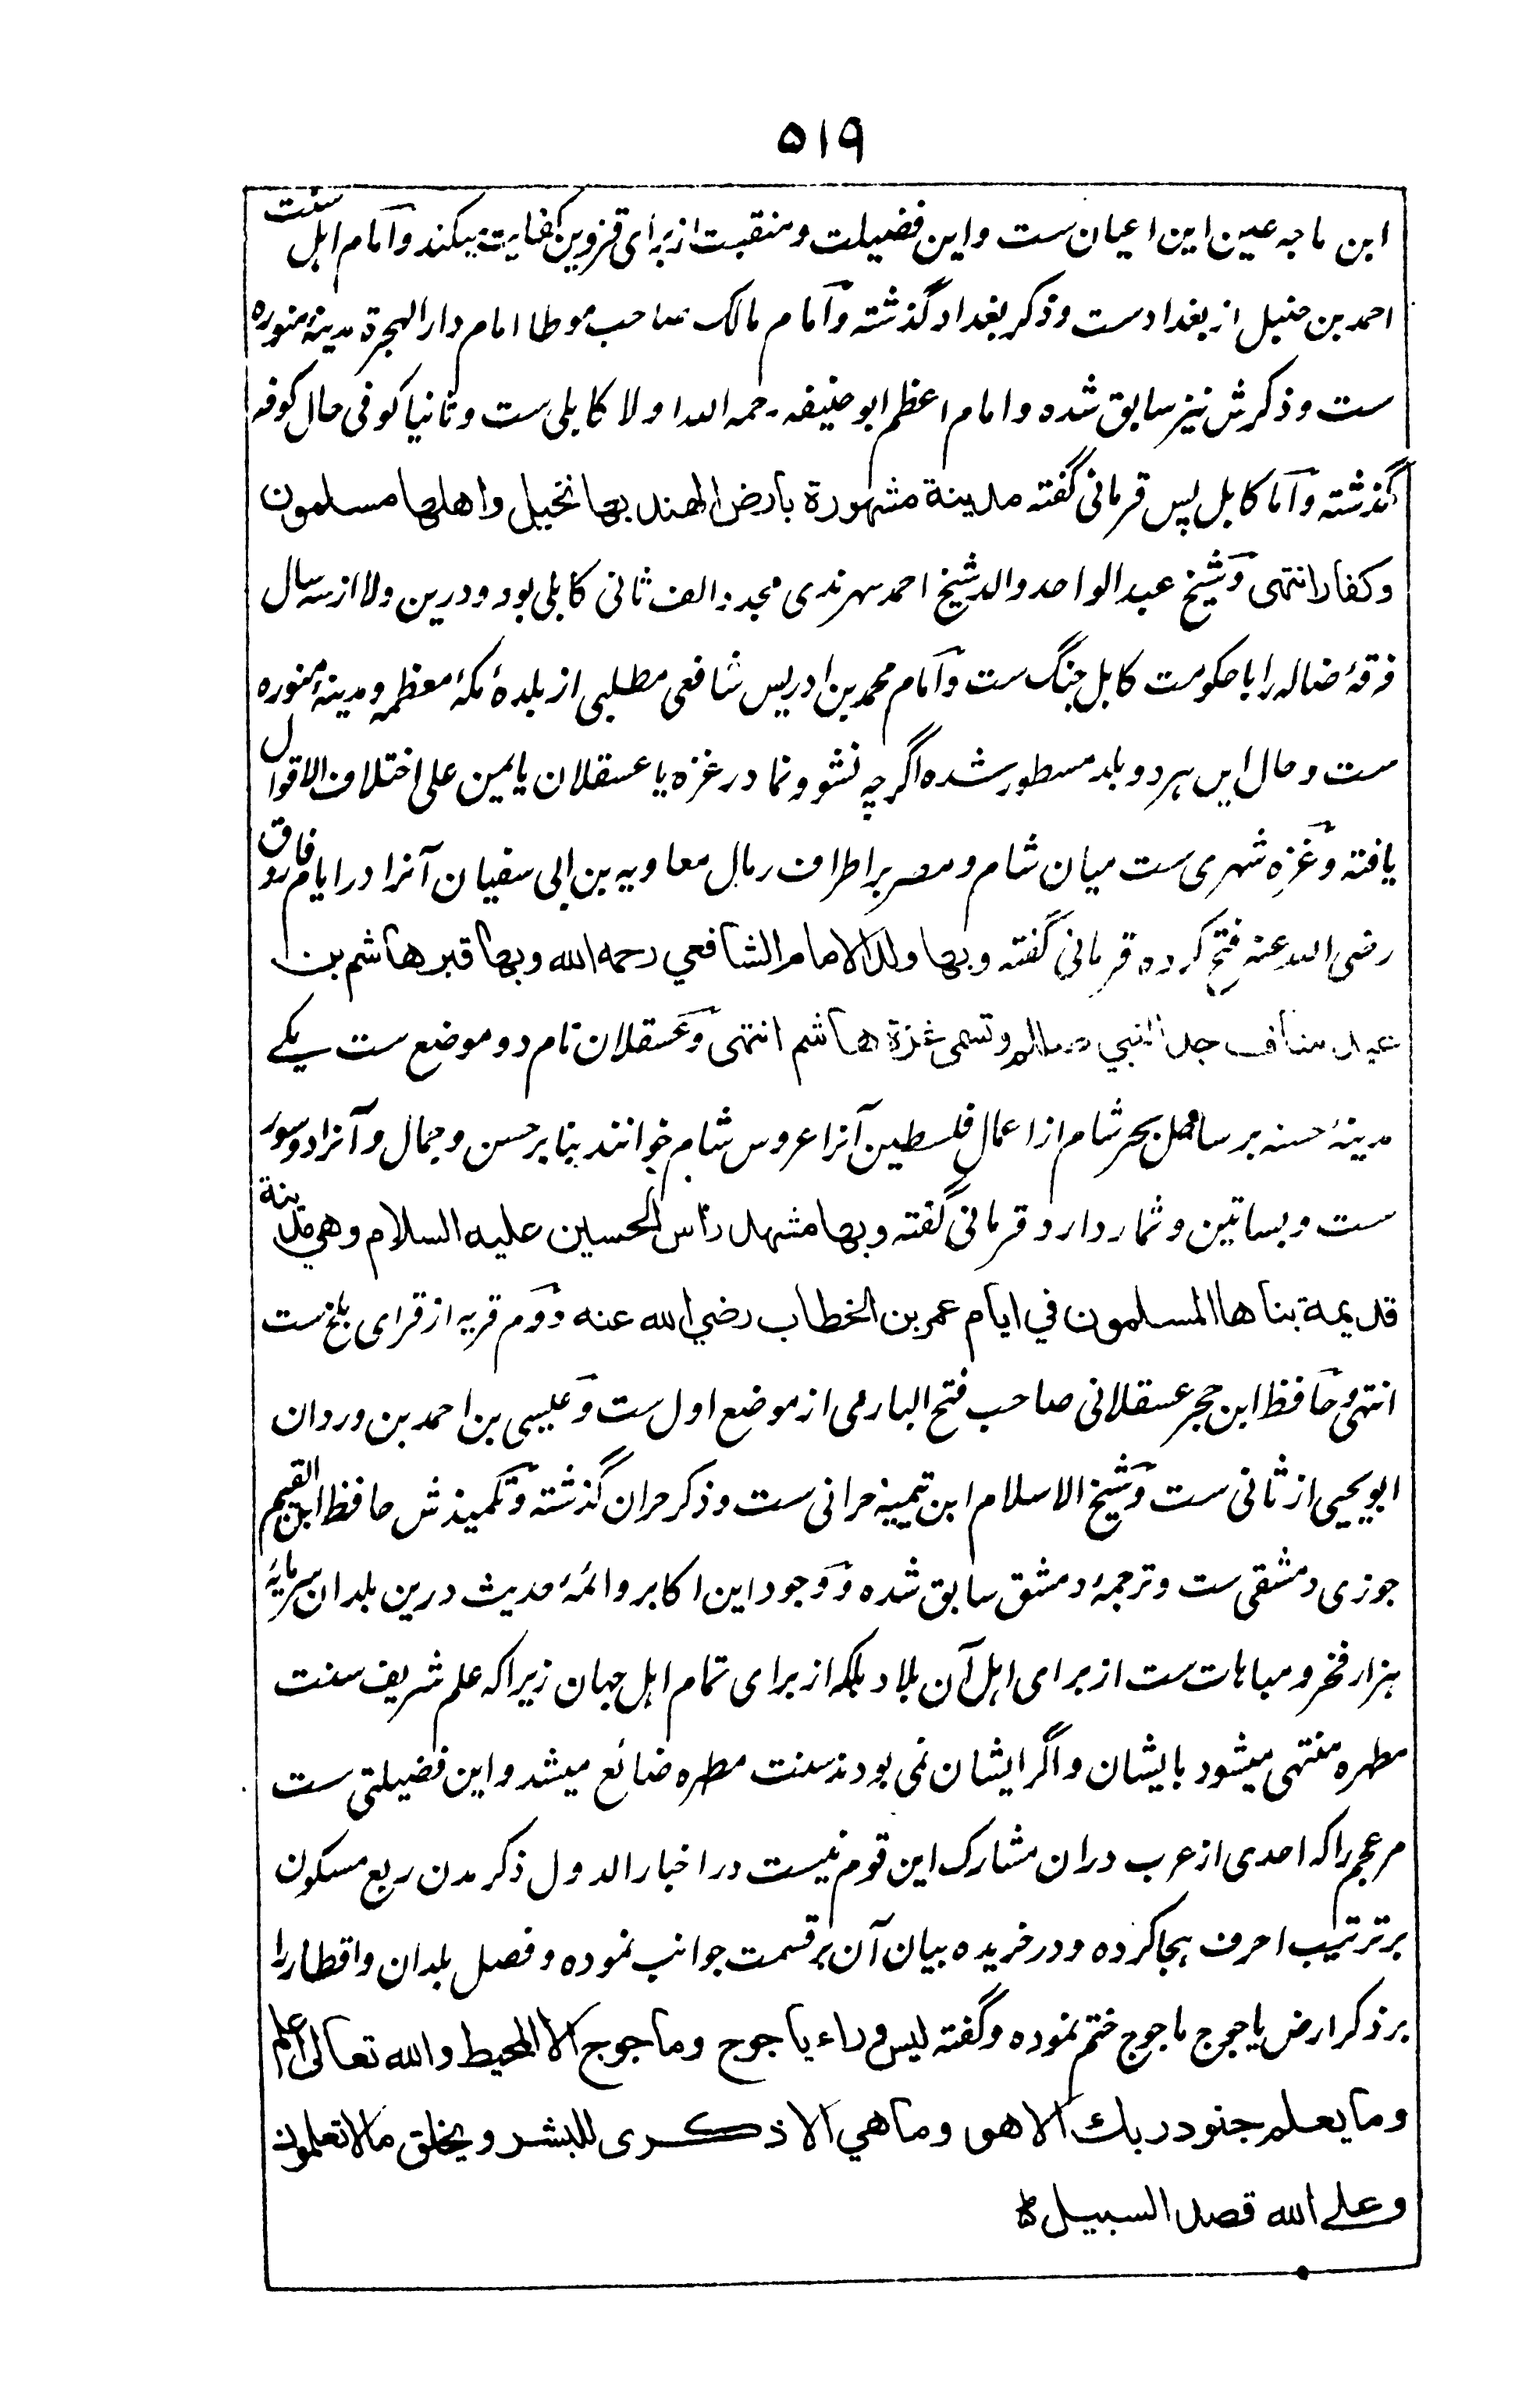 ۵۱۹
ابن ماجه عین این اعیان ست و این فضیلت و منقبت از برای قزوین کفایت میکند و امام اهل سنت
احمد بن حنبل از بغداد ست و ذکر بغداد گذشته و امام مالک صاحب موطا امام دار الهجرة مدینهٔ منوره
ست و ذکرش نیز سابق شده و امام اعظم ابو حنیفه رحمه الله اولا کابلی ست و ثانیا کوفی حال کوفه
گذشته و اما کابل پس قرمانی گفته مدینة مشهورة بارض الهند بها نخیل و اهلها مسلمون
و کفار انتهی و شیخ عبد الواحد والد شیخ احمد سهرندی مجدد الف ثانی کابلی بود و درین ولا از سه سال
فرقهٔ ضاله را با حکومت کابل جنگ ست و امام محمد بن ادریس شافعی مطلبی از بلدهٔ مکهٔ معظمه و مدینهٔ منوره
ست و حال این هر دو بلد مسطور شده اگرچه نشو و نما در غزه یا عسقلان یا یمن علی اختلاف الاقوال
یافته و غزه شهری ست میان شام و مصر بر اطراف رمال معاویه بن ابی سفیان آنرا در ایام فاروق
رضی الله عنه فتح کرده قرمانی گفته وبها ولد الامام الشافعي رحمه الله وبها قبر هاشم بن
عبد مناف جد النبي صلم وتسمى غزة هاشم انتهی و عسقلان نام دو موضع ست یکے
مدینهٔ حسنه بر ساحل بحر شام از اعمال فلسطین آنرا عروس شام خوانند بنا بر حسن و جمال و آنرا دو سور
ست و بساتین و ثمار دارد قرمانی گفته وبها مشهد رأس الحسين عليه السلام وهي مدينة
قديمة بناها المسلمون في ايام عمر بن الخطاب رضي الله عنه دوم قریه از قرای بلخ ست
انتهی و حافظ ابن حجر عسقلانی صاحب فتح الباری از موضع اول ست و عیسی بن احمد بن وردان
ابو یحیی از ثانی ست و شیخ الاسلام ابن تیمیه حرانی ست و ذکر حران گذشته و تلمیذش حافظ ابن القیم
جوزی دمشقی ست و ترجمهٔ دمشق سابق شده و وجود این اکابر و ائمهٔ حدیث درین بلدان سرمایهٔ
هزار فخر و مباهات ست از برای اهل آن بلاد بلکه از برای تمام اهل جهان زیرا که علم شریف سنت
مطهره منتهی میشود بایشان و اگر ایشان نمی بودند سنت مطهره ضائع میشد و این فضیلتی ست
مر عجم را که احدی از عرب دران مشارک این قوم نیست در اخبار الدول ذکر مدن ربع مسکون
بر ترتیب احرف هجا کرده و در خریده بیان آن بر قسمت جوانب نموده و فصل بلدان و اقطار را
بر ذکر ارض یاجوج ماجوج ختم نموده و گفته ليس وراء ياجوج وماجوج الا المحيط والله تعالى اعلم
وما يعلم جنود ربك الا هو وما هي الا ذكرى للبشر ويخلق ما لا تعلمون
وعلى الله قصد السبيل